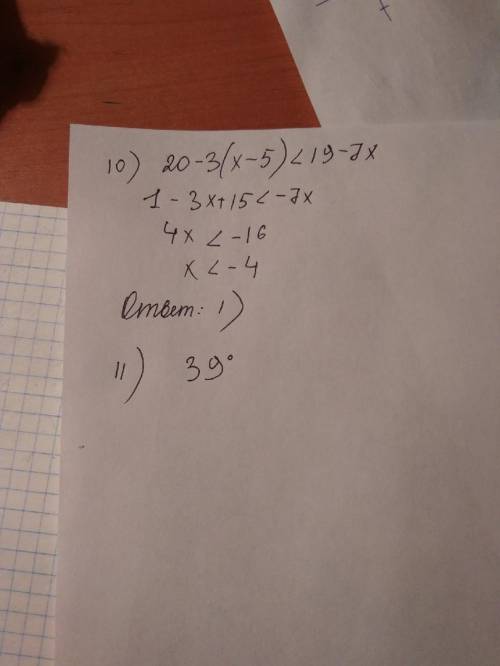 10) 20-3(x-5)<19-7x
1-3x+15<-7x
4x<-16
x<-4
Ответ: 1)
11) 39°